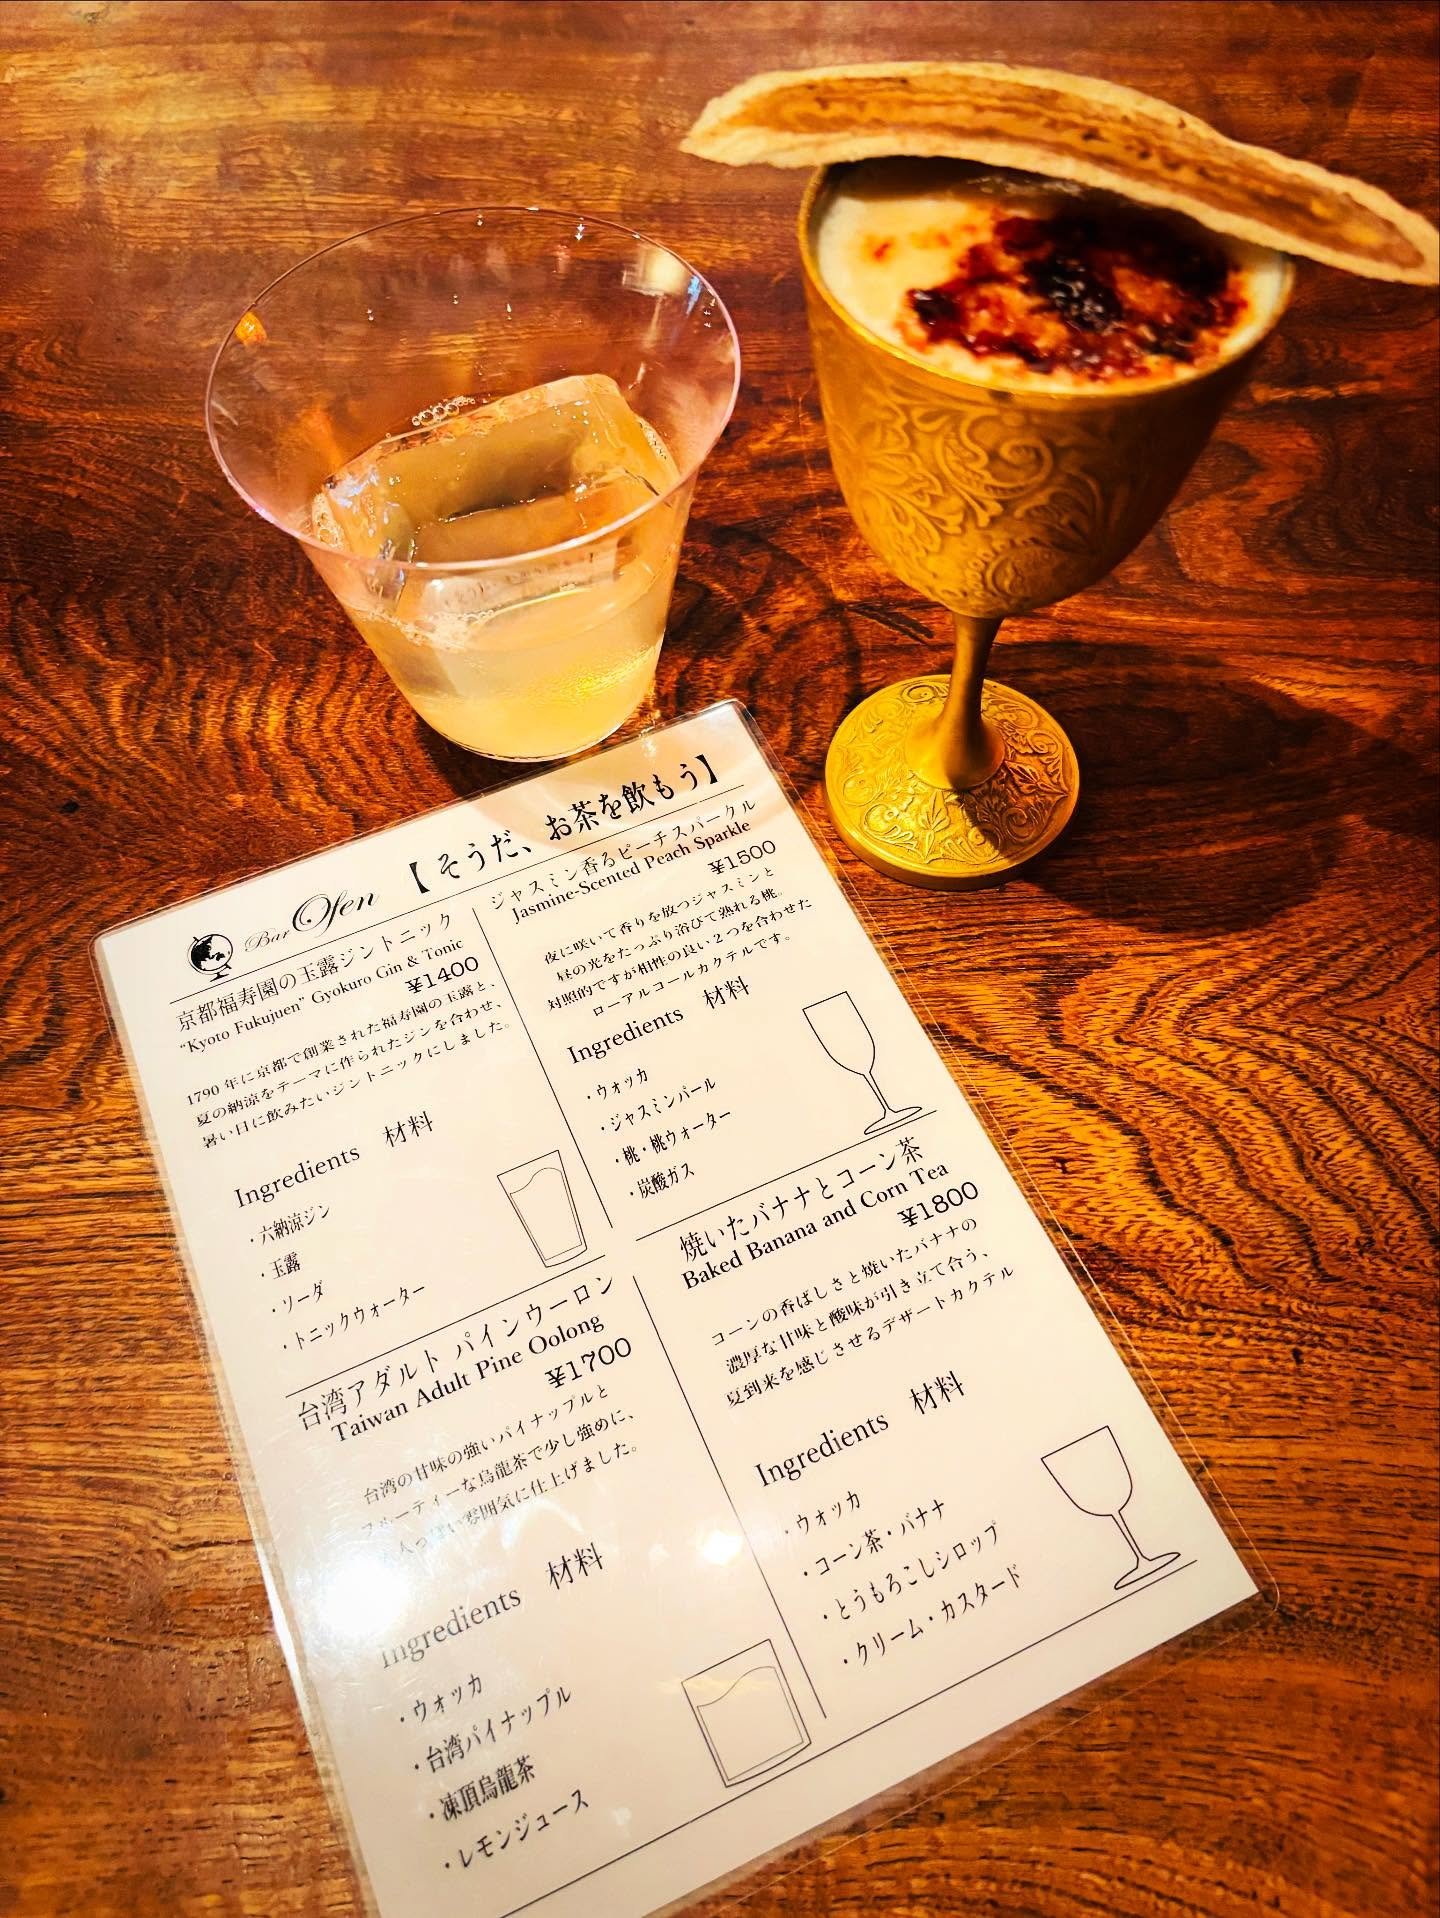 Bar Osen 【そうだ、お茶を飲もう】
京都福寿園の玉露ジントニック
“Kyoto Fukujuen” Gyokuro Gin & Tonic
¥1400
1790 年に京都で創業された福寿園の玉露と、
夏の納涼をテーマに作られたジンを合わせ、
暑い日に飲みたいジントニックにしました。
Ingredients 材料
・六納涼ジン
・玉露
・ソーダ
・トニックウォーター
ジャスミン香るピーチスパークル
Jasmine-Scented Peach Sparkle
¥1500
夜に咲いて香りを放つジャスミンと
昼の光をたっぷり浴びて熟れる桃。
対照的ですが相性の良い２つを合わせた
ローアルコールカクテルです。
Ingredients 材料
・ウォッカ
・ジャスミンパール
・桃・桃ウォーター
・炭酸ガス
台湾アダルト パインウーロン
Taiwan Adult Pine Oolong
¥1700
台湾の甘味の強いパイナップルと
フルーティーな烏龍茶で少し強めに、
大人っぽい雰囲気に仕上げました。
Ingredients 材料
・ウォッカ
・台湾パイナップル
・凍頂烏龍茶
・レモンジュース
焼いたバナナとコーン茶
Baked Banana and Corn Tea
¥1800
コーンの香ばしさと焼いたバナナの
濃厚な甘味と酸味が引き立て合う、
夏到来を感じさせるデザートカクテル
Ingredients 材料
・ウォッカ
・コーン茶・バナナ
・とうもろこしシロップ
・クリーム・カスタード